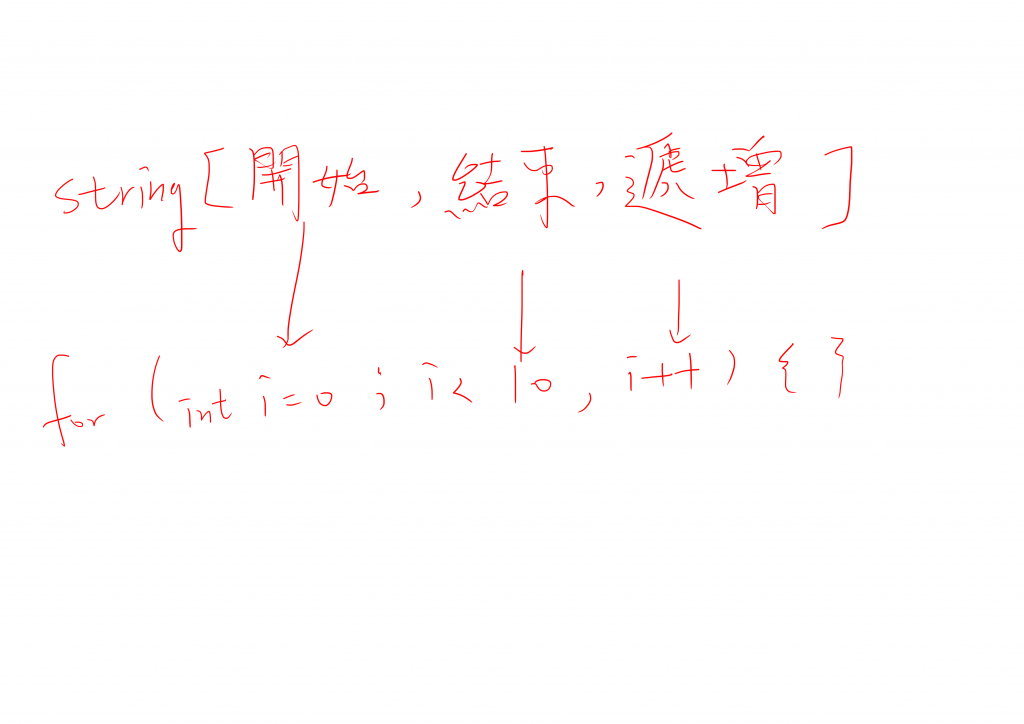 string[開始,結束,遞增]
for (int i=0; i< 10, i++) { }